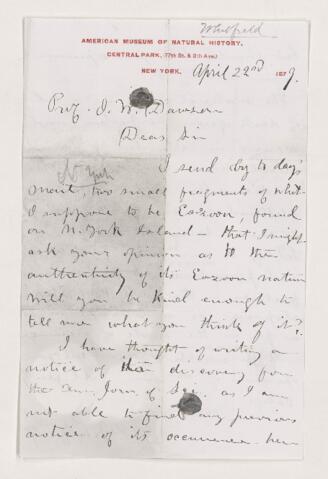 Whitfield
AMERICAN MUSEUM OF NATURAL HISTORY,
CENTRAL PARK, (77th St. & 8th Ave.)
NEW YORK. April 22nd 1879.
Prof. J. W. Dawson
Dear Sir
N. York
I send by to day's
mail, two small fragments of what
I suppose to be Eozoon, found
on N. York Island — that I might
ask your opinion as to the
authenticity of its Eozoon nature
Will you be kind enough to
tell me what you think of it?
I have thought of writing a
notice of the discovery for
the Am. Jour. of Sci. as I am
not able to find any previous
notice of its occurrence here